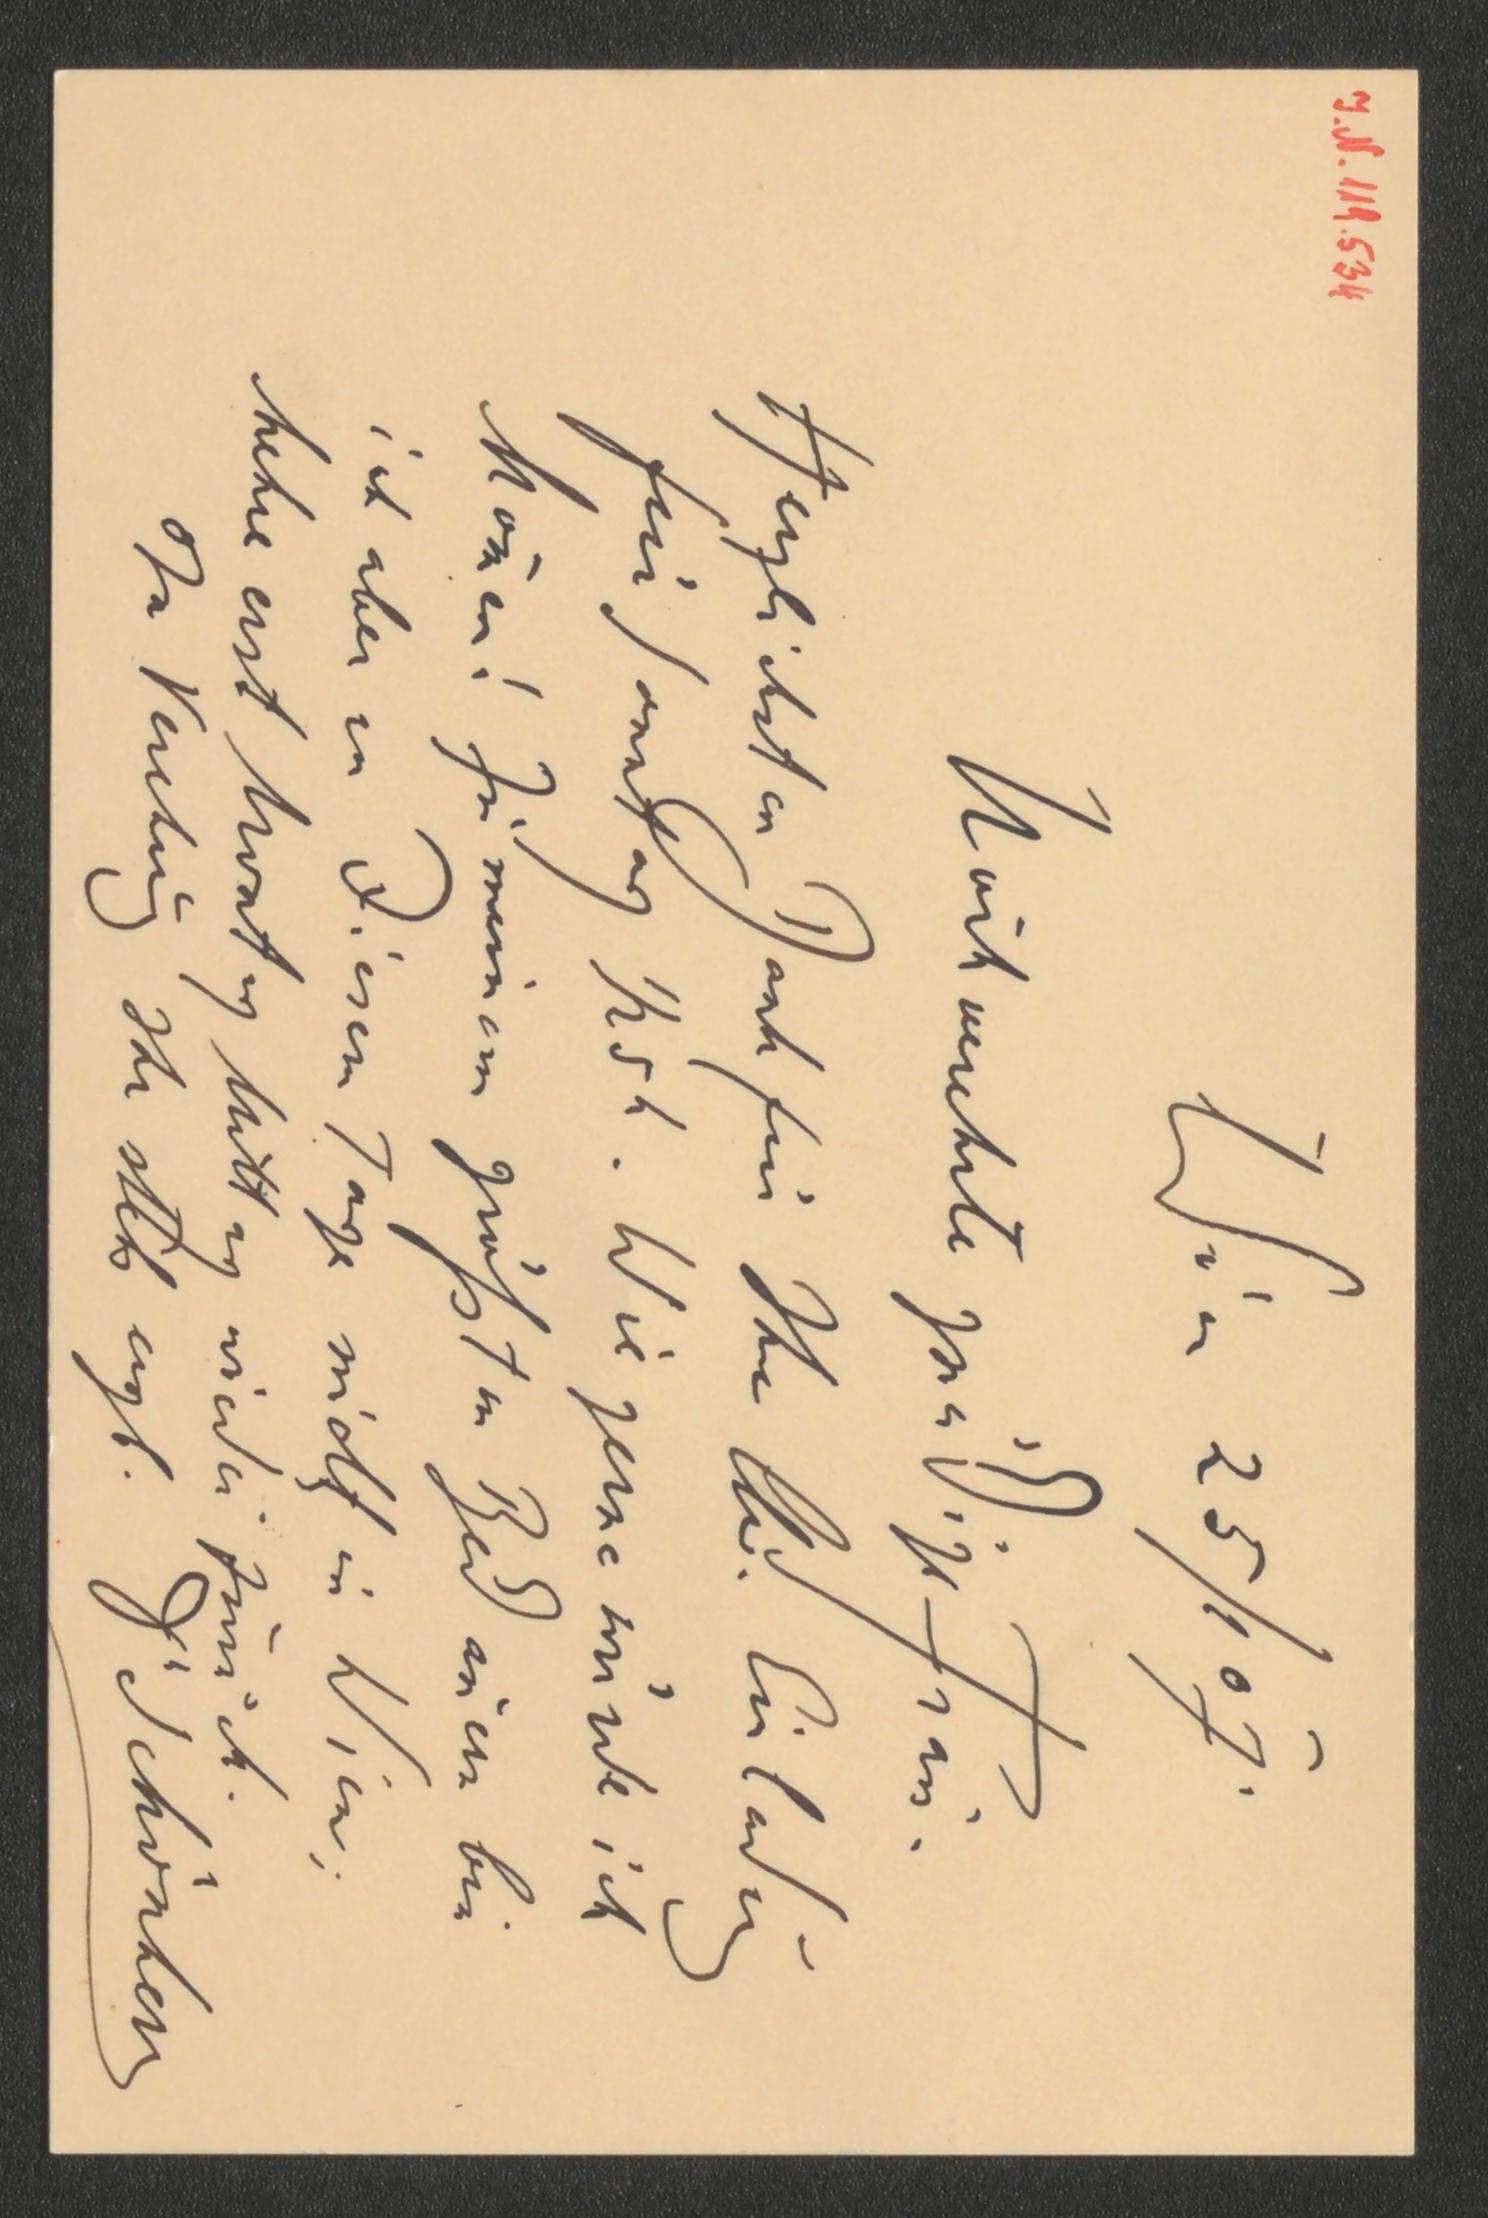 J.N. 119.534
Wien 25/1 07.
Hochverehrte gnädige Frau.
Herzlichsten Dank für Ihre Einladung
für Sonntag Wie gerne würde ich
kommen! Zu meinem größten Bedauern bin
ich aber an diesem Tage nicht in Wien;
kehre erst Montag Mittag wieder zurück.
In Verehrung Ihr stets ergb.